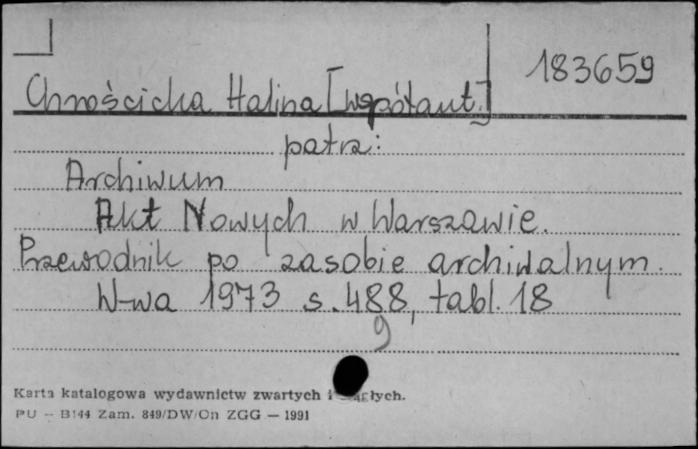 183659
Chrościcka Halina [współaut.]
patrz:
Archiwum
Akt Nowych w Warszawie.
Przewodnik po zasobie archiwalnym.
W-wa 1973 s. 488, tabl. 18
9
Karta katalogowa wydawnictw zwartych i
PU — B144 Zam. 849/DW/On ZGG — 1991